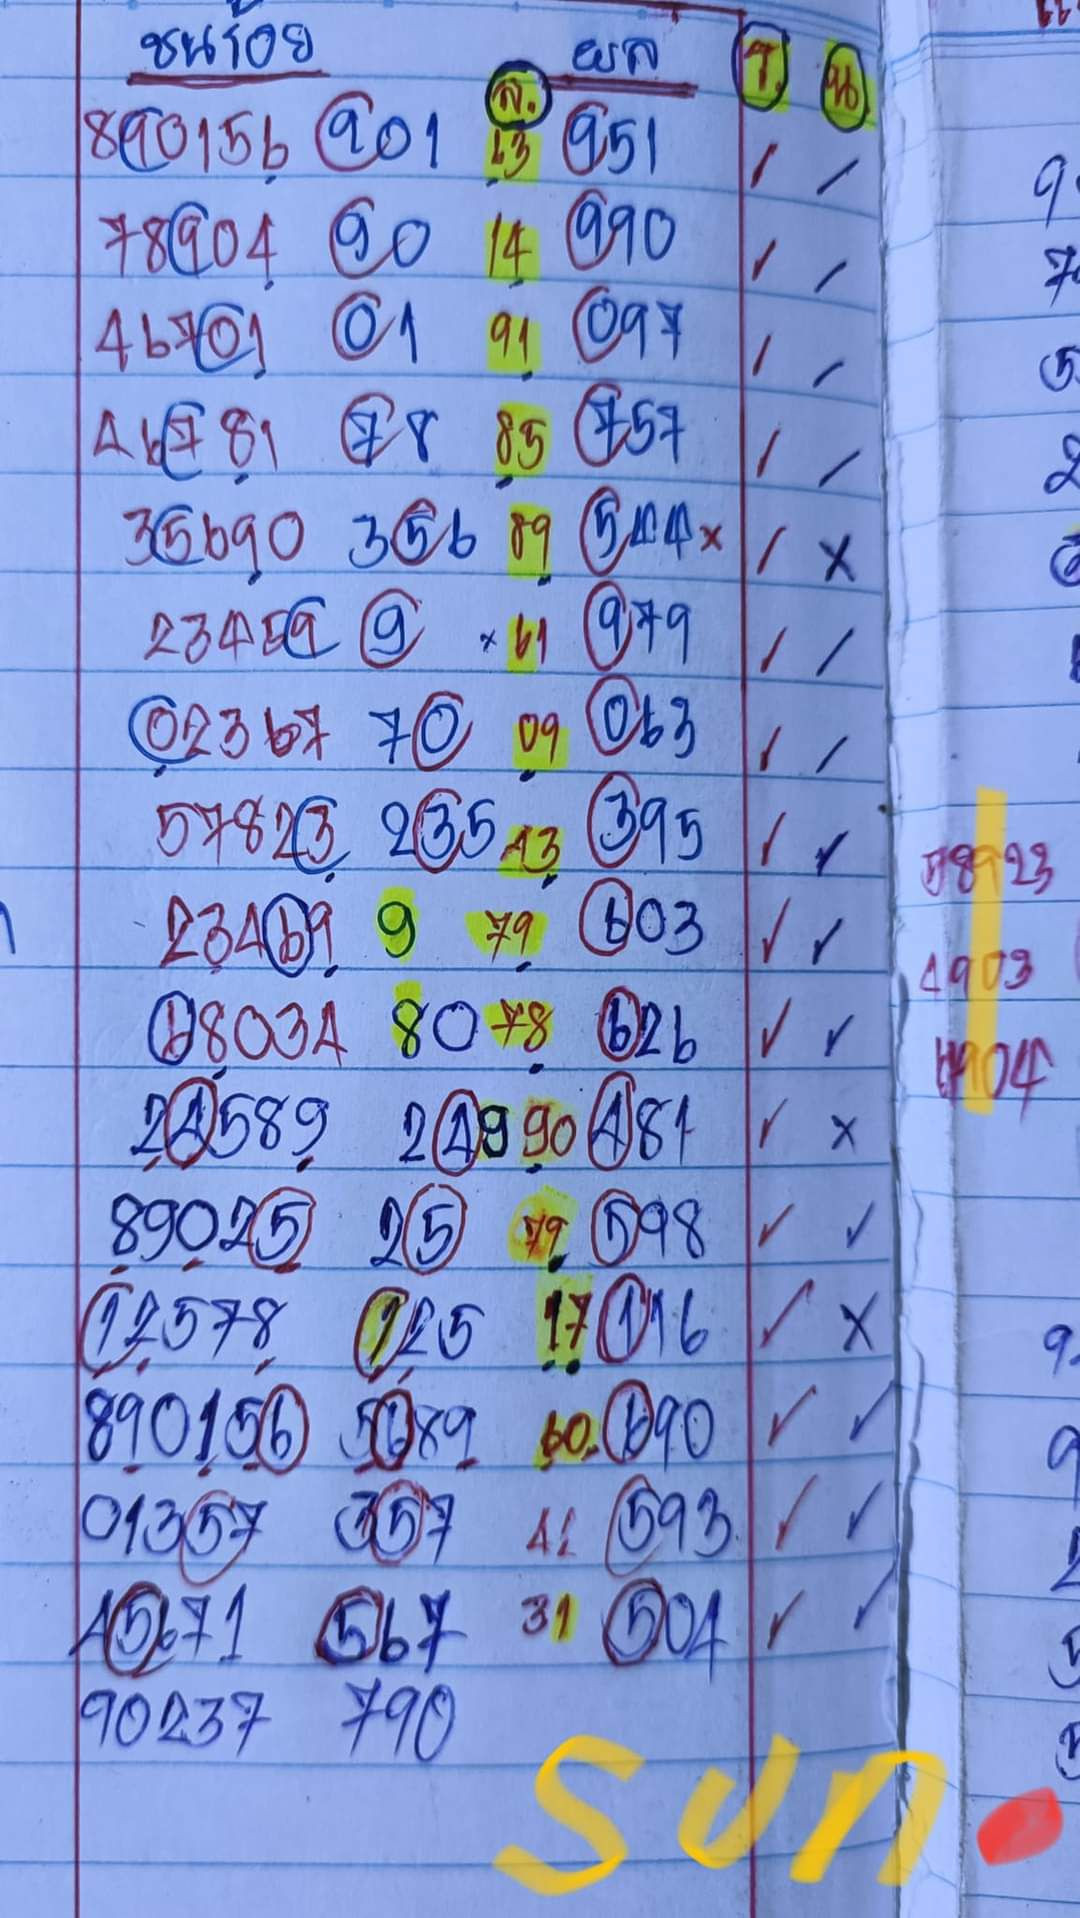 ชนร้อย ผล
ล. ร. น
890156 901 63 951 / /
78904 90 14 990 / /
46701 01 91 097 / /
46781 78 85 757 / /
35690 356 89 544 x / x
23459 9 x 61 979 / /
02367 70 09 063 / /
57823 235 43 395 / /
23469 9 79 603 / /
68034 80 78 626 / /
24589 249 90 481 / x
89025 25 79 598 / /
12578 125 17 116 / x
890156 5689 60 690 / /
01357 357 593 / /
45671 567 31 504 / /
90237 790
58923
4903
6904
sun.